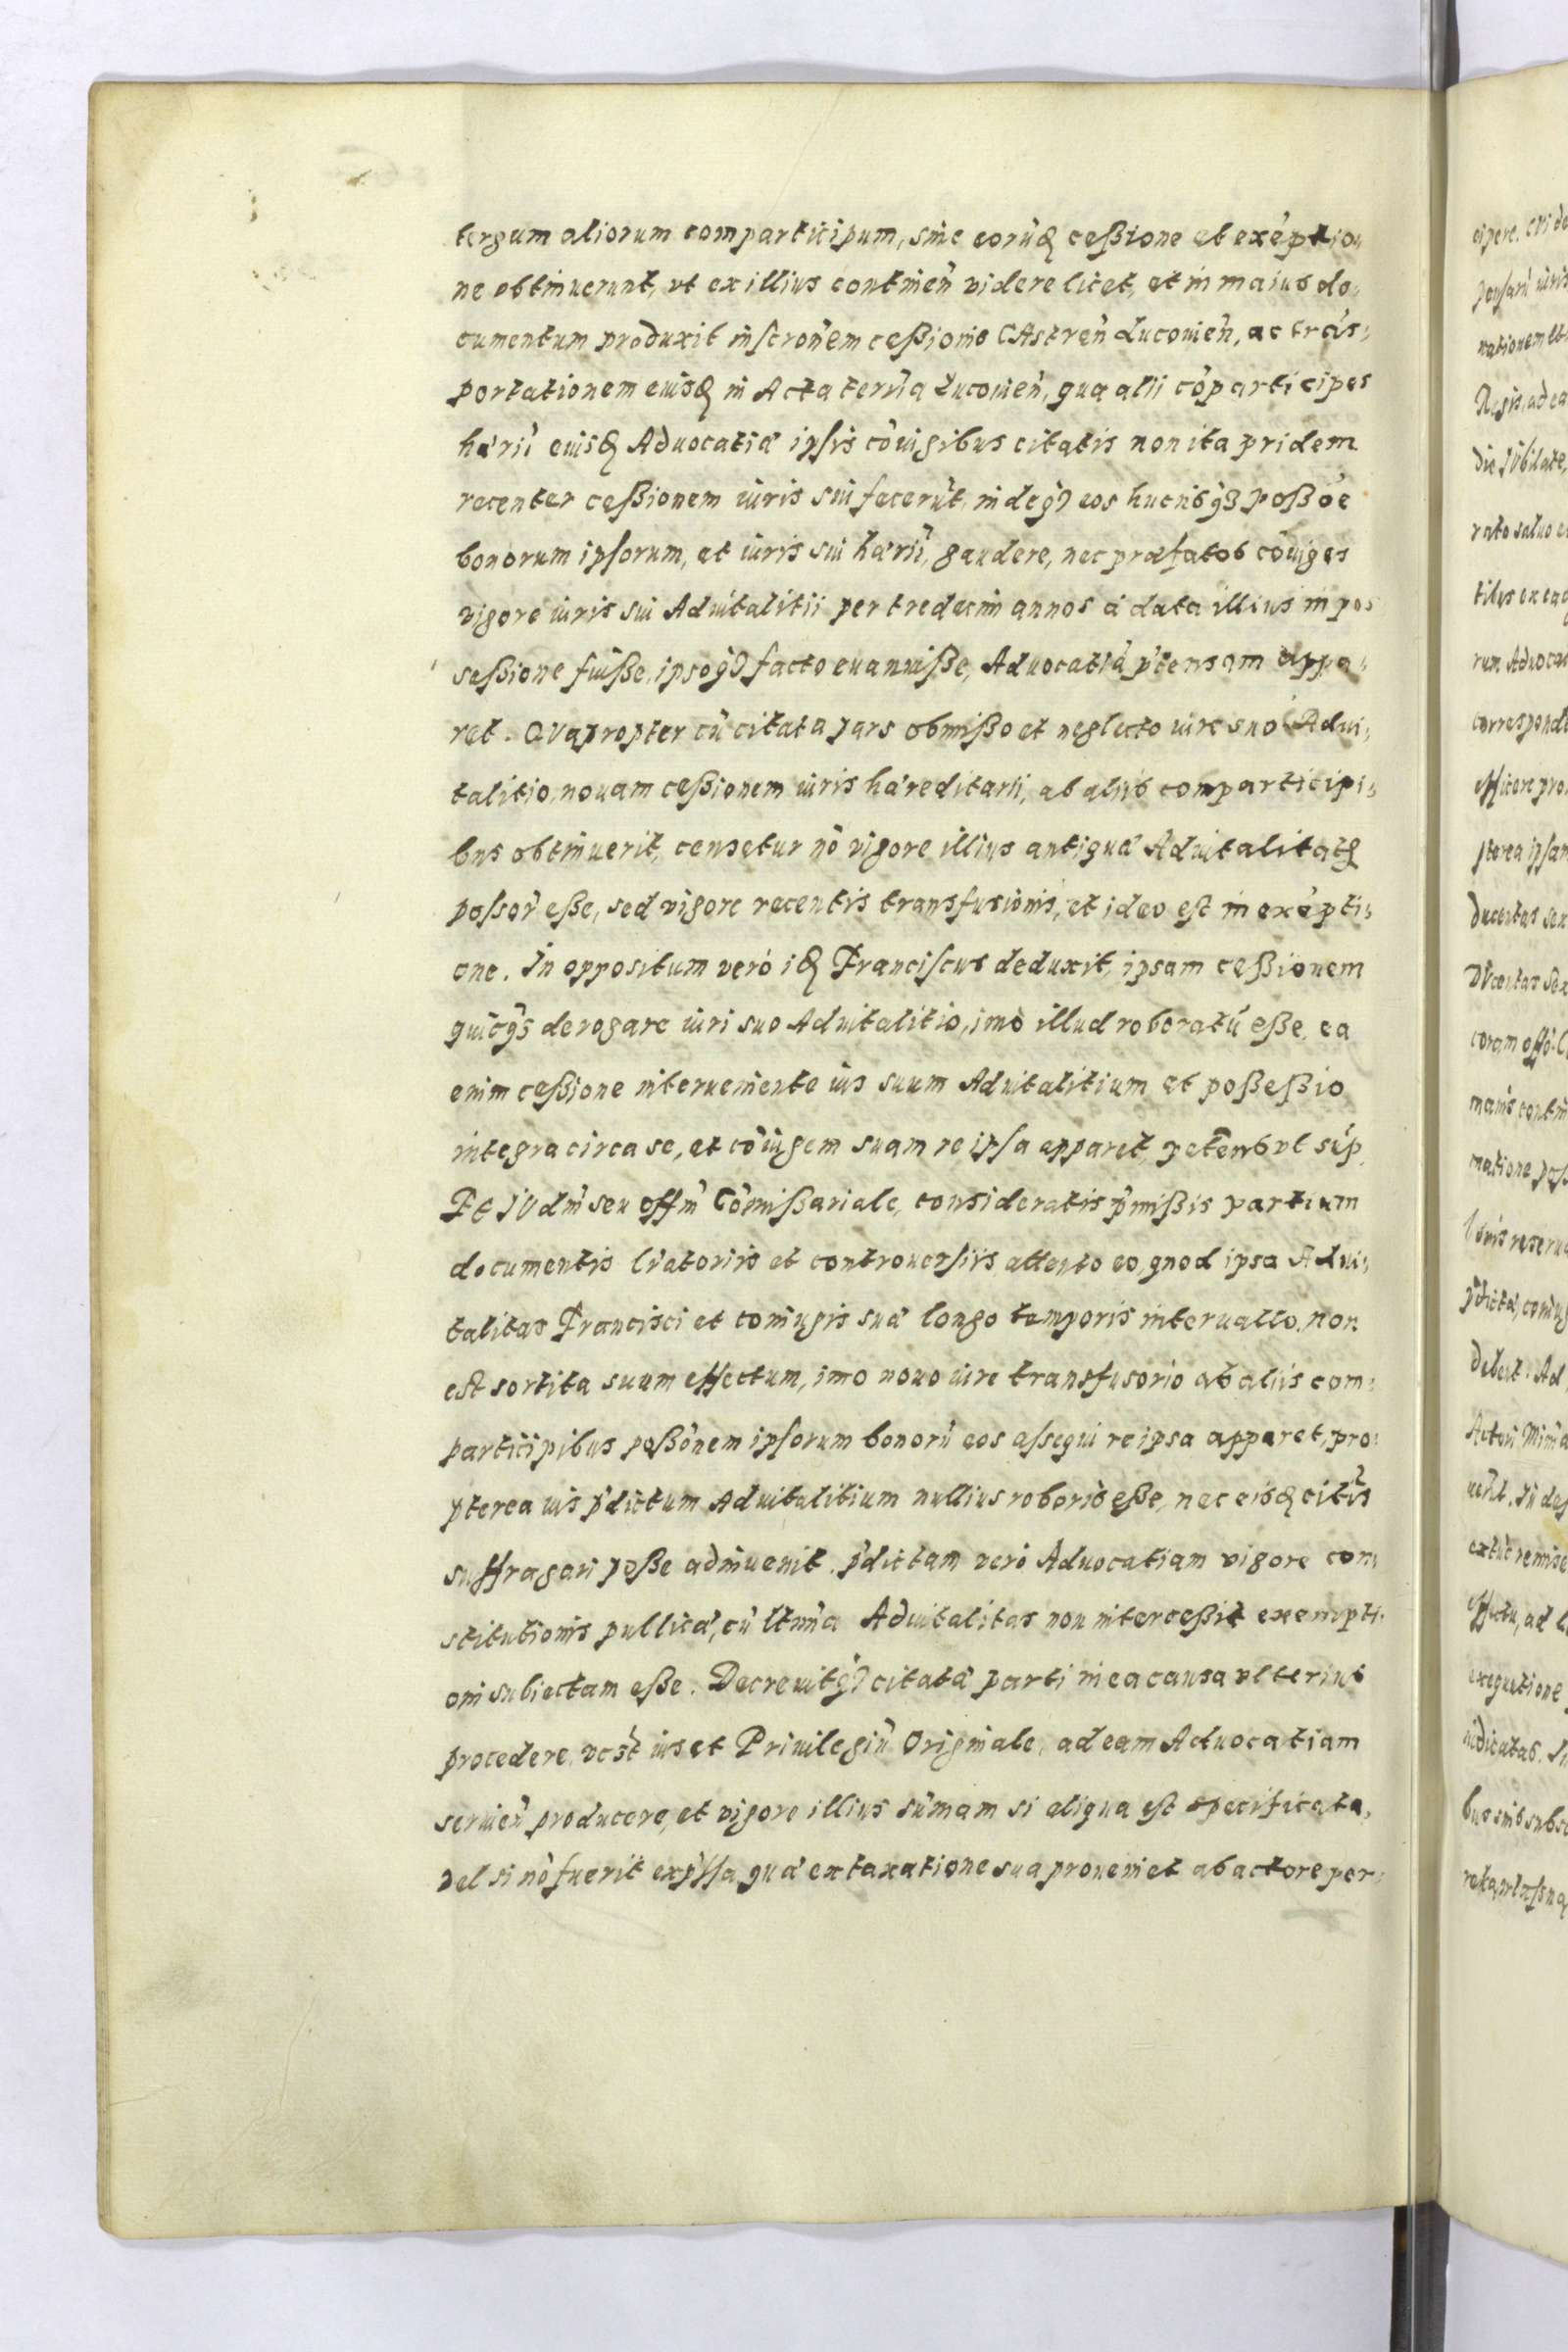 tergum aliorum comparticipum, sine eorūd cessione et exēptio⸗
ne obtinuerunt, vt ex illius continen̄ videre licet, et in maius do⸗
cumentum produxit inscrōnem cessionis CAstren̄ Lucouien̄, ac trās⸗
portationem eiusd in Acta terrīa Lucouien̄, qua alii cōparticipes
hærū eiusd Aduocatiæ ipsis cōiugibus citatis non ita pridem
recenter cessionem iuris sui facerūt, indeq; eos hucusq; possōe
bonorum ipsorum, et iuris sui hærii, gaudere, nec præfatos cōiuges
vigore iuris sui Aduitalitii per tredecim annos à data illius in pos
sessione fuisse, ipsoq; facto euanuisse, Aduocatiā p̄tensam appa⸗
ret. QVapropter cū citata pars obmisso et neglecto iure suo Adui⸗
talitio, nouam cessionem iuris hæreditarii, ab aliis comparticipi⸗
bus obtinuerit, censetur nō vigore illius antiquæ Aduitalitatis
possor̄ esse, sed vigore recentis transfusionis, et ideo est in exēpti⸗
one. In oppositum verò id Franciscus deduxit, ipsam cessionem
quicq̄ derogare iuri suo Aduitalitio, imò illud roboratū esse, ea
enim cessione interueniente ius suum Aduitalitium et possessio
integra circa se, et cōiugem suam re ipsa apparet, peten̄s vt sup.
PE IVdm̄ seu offm̄ Cōmissariale, consideratis p̄missis partium
documentis lr̄atoriis et controuersiis, attento eo, quod ipsa Adui⸗
talitas Francisci et coniugis suæ longo temporis interuallo, non
est sortita suum effectum, imo nouo iure transfusorio ab aliis com⸗
participibus possōnem ipsorum bonorū eos assequi re ipsa apparet, pro⸗
pterea ius p̄dictum Aduitalitium nullius roboris esse, nec eisd citt̄is
suffragari posse adinuenit. p̄dictam verò Aduocatiam vigore con⸗
stitutionis publicæ, cū ltīma Aduitalitas non intercessit exempti⸗
oni subiectam esse. Decreuitq; citatæ parti in ea causa vlterius
procedere, vcꝫt ius et Priuilegiū Originale, ad eam Aduocatiam
seruien̄ producere, et vigore illius sūmam si aliqua est specificata,
vel si nō fuerit exp̄ssa, quæ ex taxatione sua proueniet ab actore per⸗